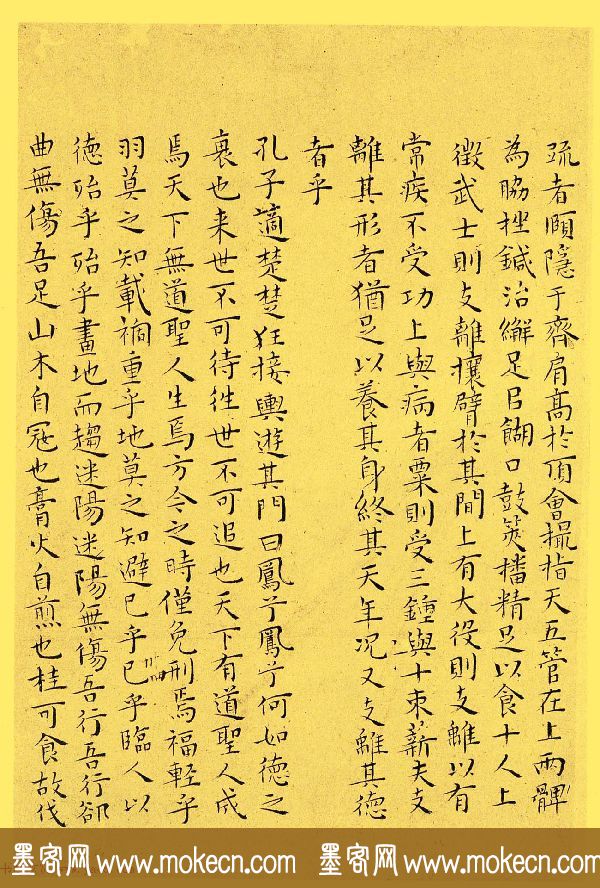 疏者頤隱于齊肩高於頂會撮指天五管在上兩髀
為脇挫鍼治繲足㠯餬口鼓筴播精足以食十人上
徵武士則支離攘臂於其間上有大役則支離以有
常疾不受功上與病者粟則受三鍾與十束薪夫支
離其形者猶足以養其身終其天年況又支離其德
者乎
孔子適楚楚狂接輿遊其門曰鳳兮鳳兮何如德之
衰也来世不可待徃世不可追也天下有道聖人成
焉天下無道聖人生焉方今之時僅免刑焉福輕乎
羽莫之知載禍重乎地莫之知避已乎已乎臨人以
德殆乎殆乎畫地而趨迷陽迷陽無傷吾行吾行郤
曲無傷吾足山木自冦也膏火自煎也桂可食故伐
墨客网 www.mokecn.com 墨客网 www.mokecn.com